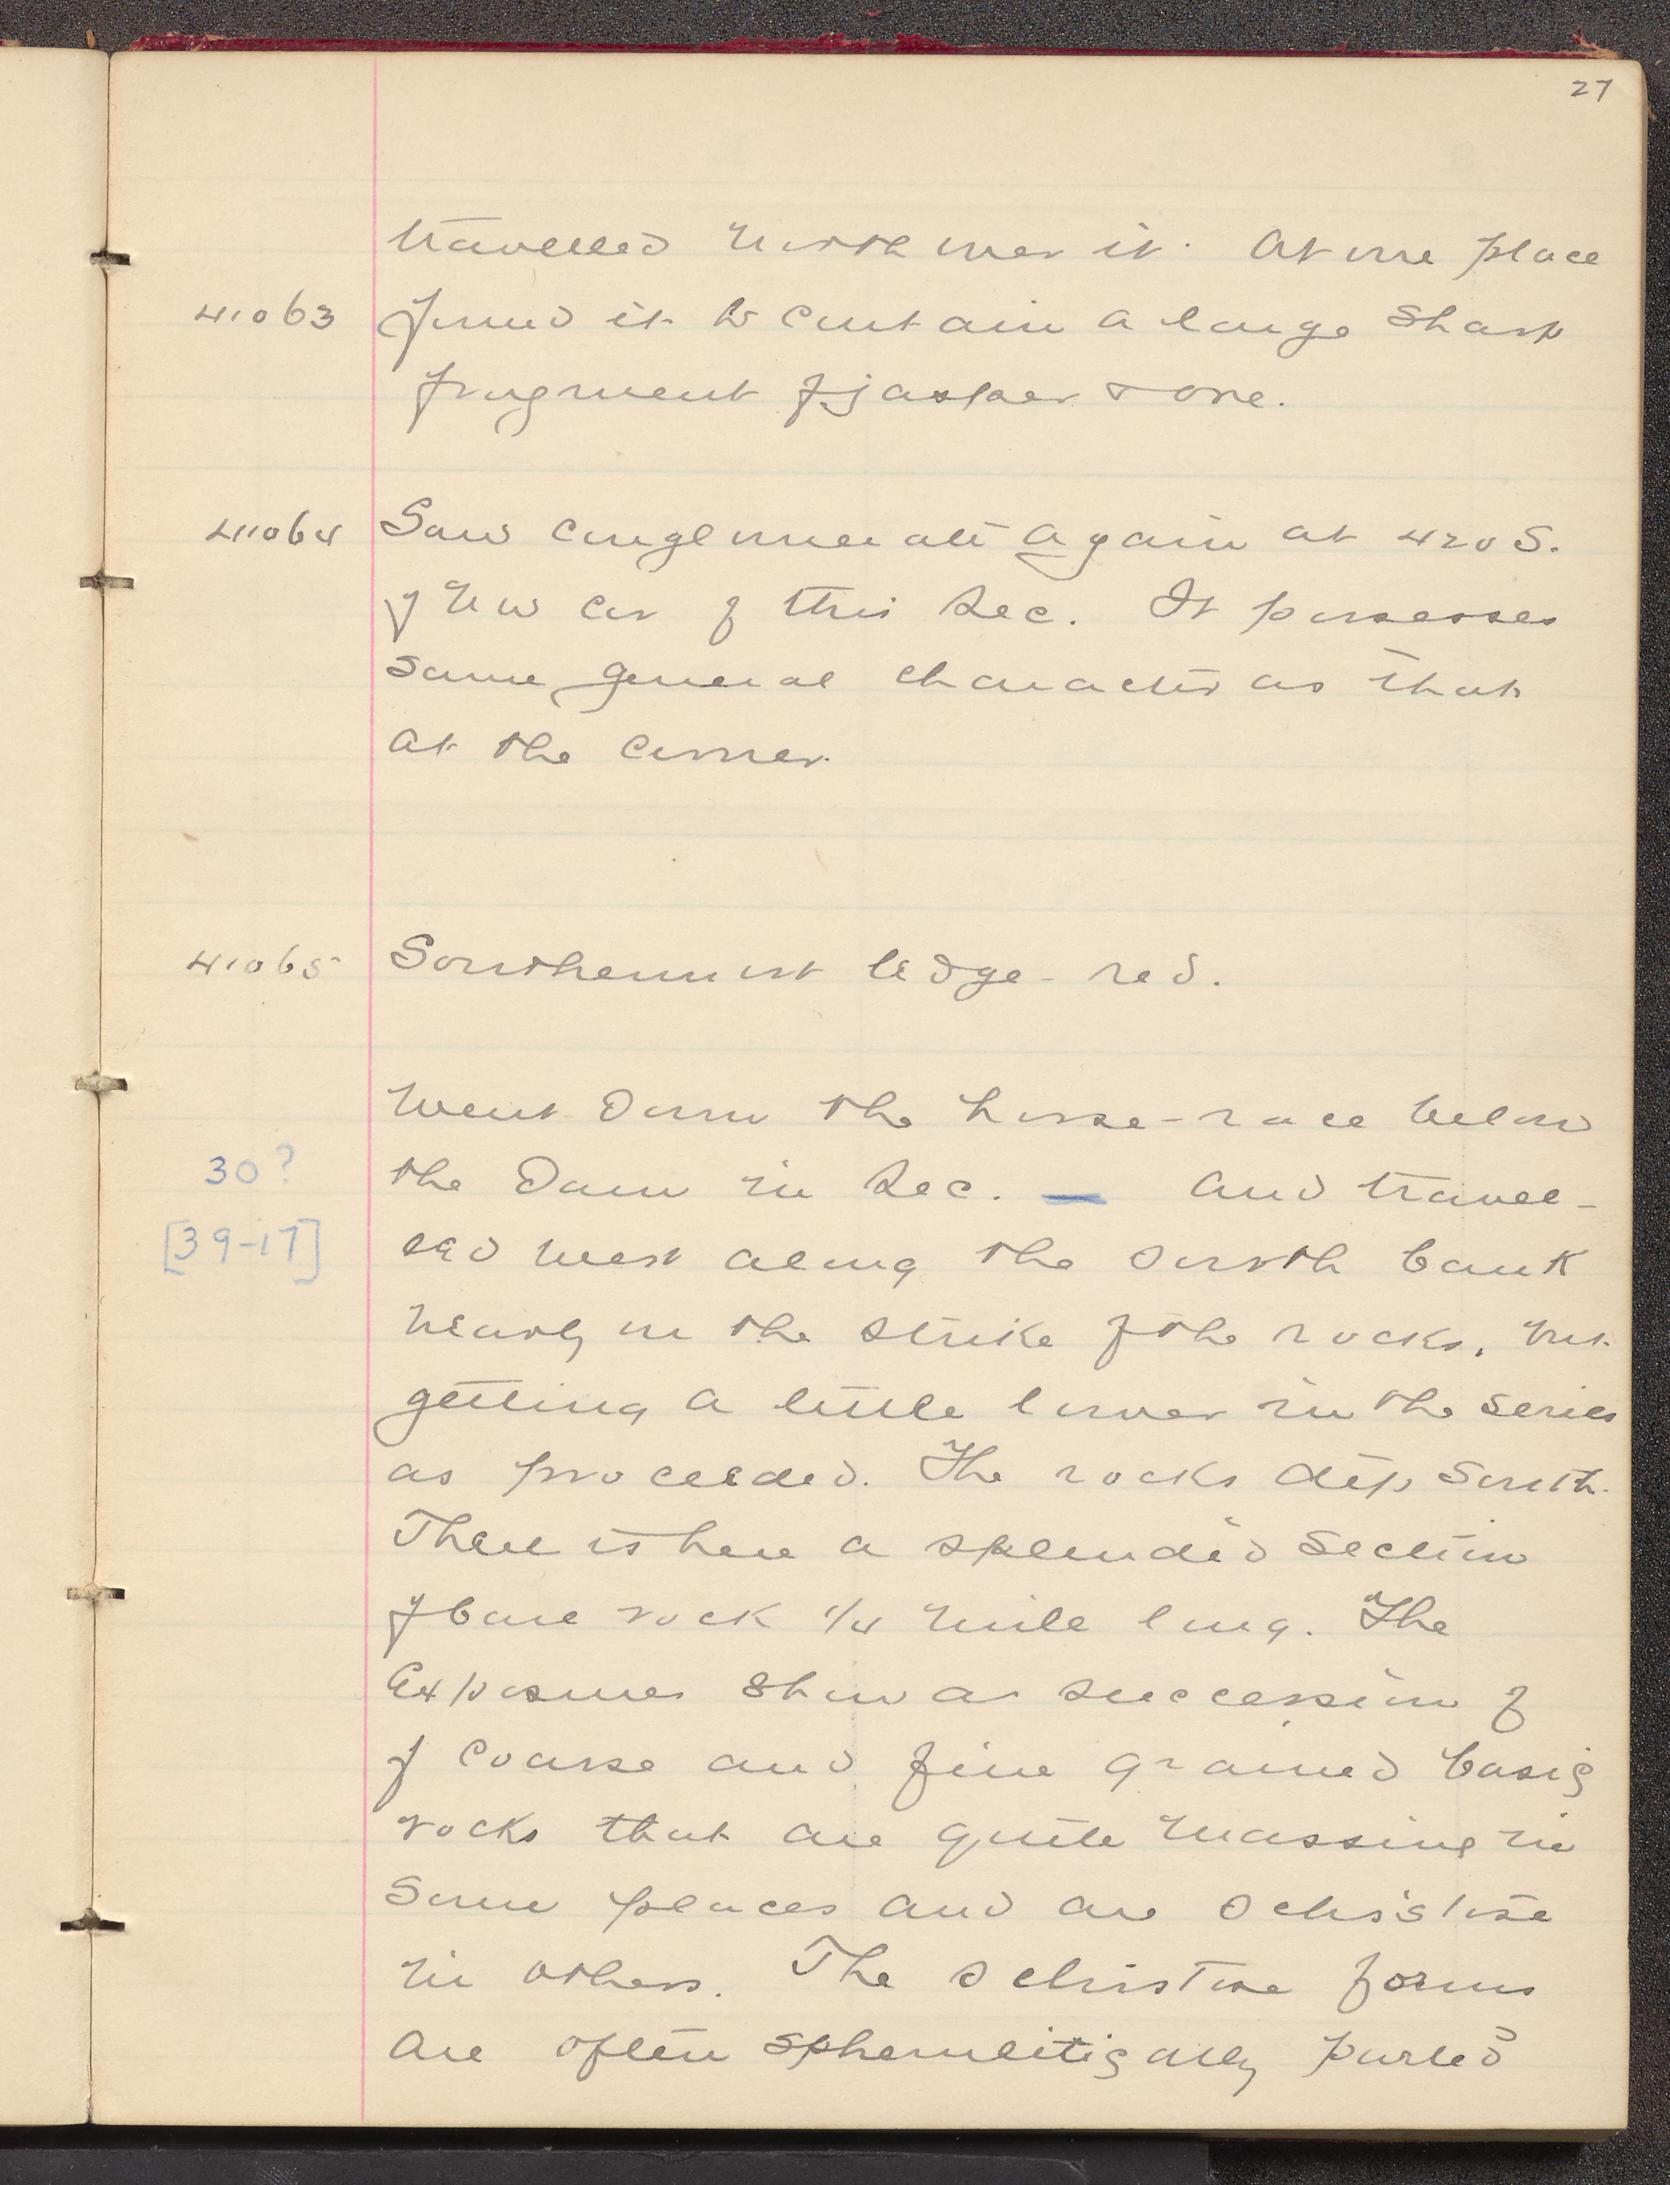 27
travelled north over it. At one place
41063 found it to contain a large sharp
fragment of jasper & ore.
41064 Saw conglomerate again at 420 S.
of NW cor of this Sec. It possesses
same general character as that
at the corner.
41065 Southernmost ledge - red.
Went down the horse-race below
30? the Dam in Sec. — and travel-
[39-17] led west along the south bank
nearly on the strike of the rocks, but
getting a little lower in the series
as proceeded. The rocks dip South.
There is here a splendid section
of bare rock 1/4 mile long. The
exposures show a succession of
of coarse and fine grained basic
rocks that are quite massive in
some places and are schistose
in others. The schistose forms
are often spherulitically parted